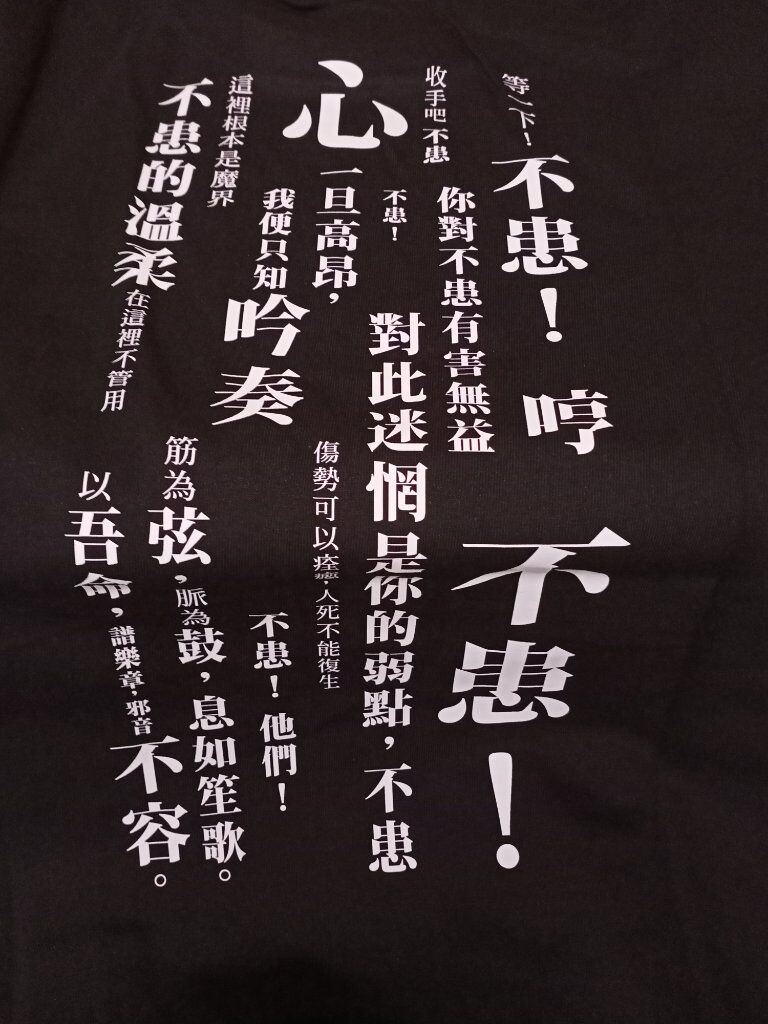 等一下！
不患！
哼
不患！
收手吧 不患
你對不患有害無益
不患！
對此迷惘是你的弱點，不患
心
一旦高昂，
我便只知
吟奏
傷勢可以痊癒，人死不能復生
不患！他們！
這裡根本是魔界
不患的溫柔在這裡不管用
筋為弦，脈為鼓，息如笙歌。
以吾命，譜樂章，邪音不容。